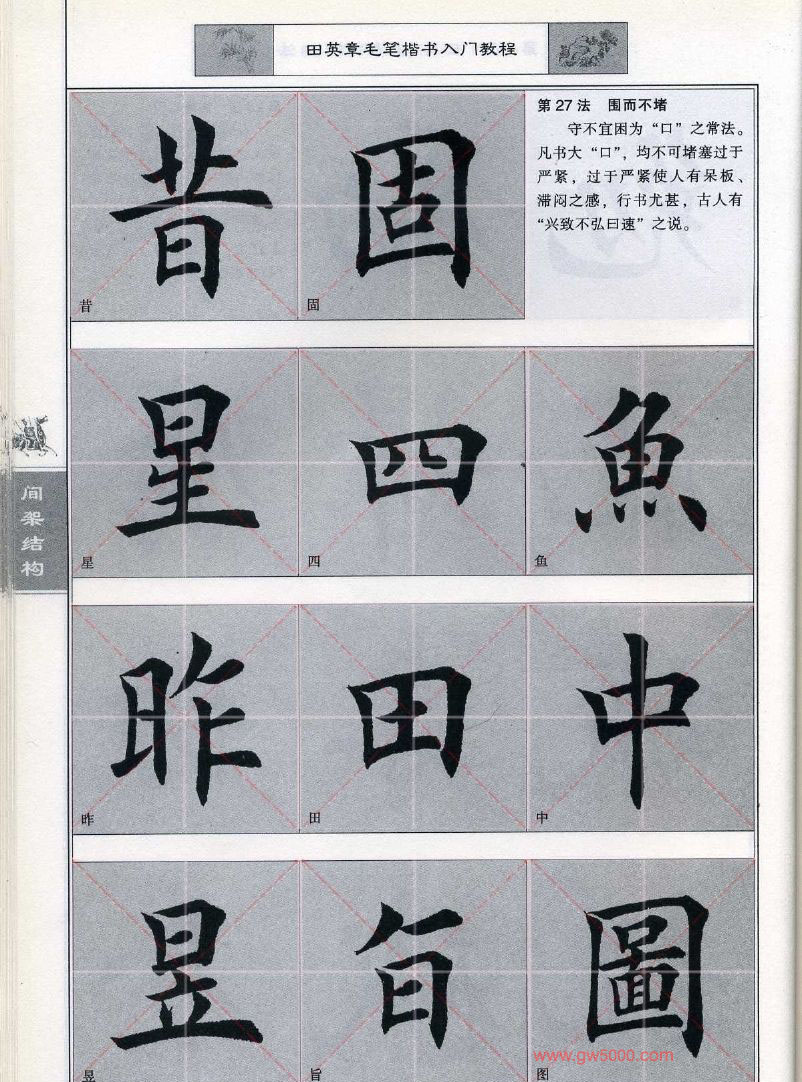 田英章毛笔楷书入门教程
第27法 围而不堵
守不宜困为“口”之常法。
凡书大“口”，均不可堵塞过于
严紧，过于严紧使人有呆板、
滞闷之感，行书尤甚，古人有
“兴致不弘曰速”之说。
昔 固
昔 固
星 四 魚
星 四 鱼
间架结构
昨 田 中
昨 田 中
昱 旨 圖
昱 旨 图
www.gw5000.com